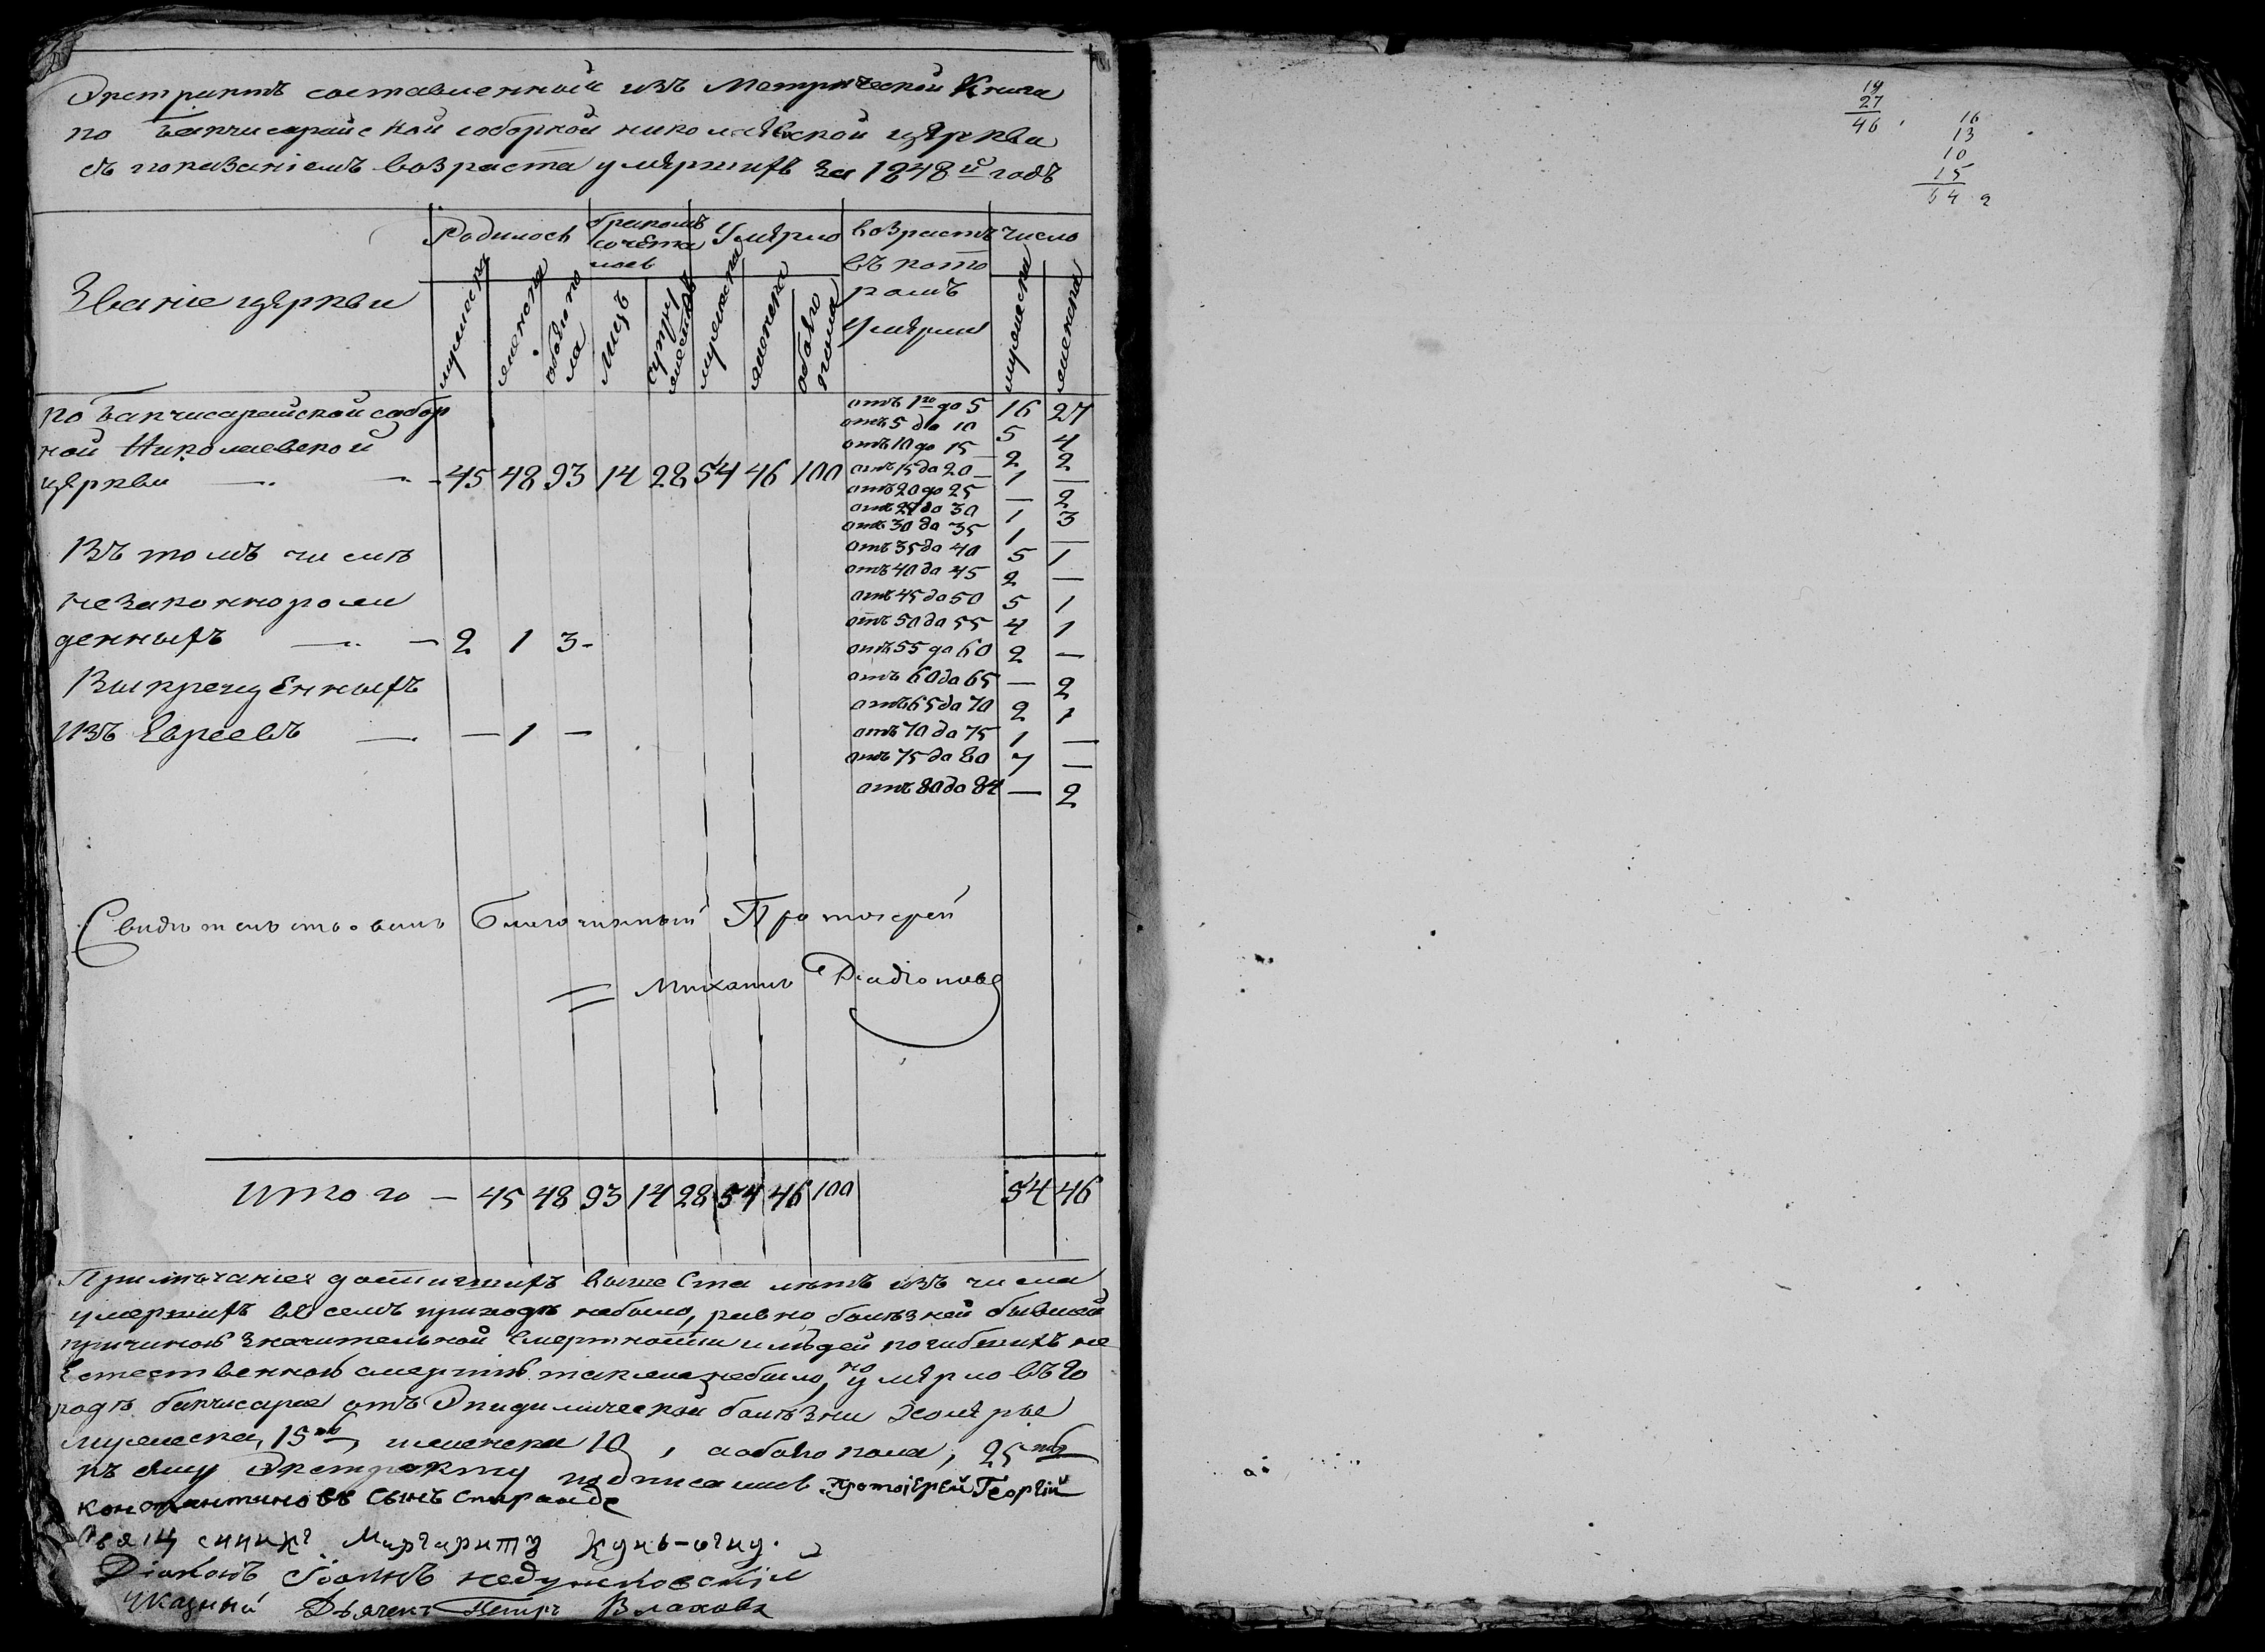 Экстрактъ составленный изъ Метрической Книги
по Бахчисарайской соборной николаевской цѣркви
съ показаніемъ возраста умѣршихъ за 1848й годъ
Званіе цѣркви
Родилось
бракомъ сочѣта лось
Умѣрло
возрастъ въ кото ромъ умѣрли
число
мужеска
женска
обоего по ла
лицъ
супру жествъ
мужеска
женска
обоего пола
мужеска
женска
по Бахчисарайской собор
ной Николаевской
цѣркви — — 45 48 93 14 28 54 46 100
отъ 1го до 5 16 27
отъ 5 до 10 5 4
отъ 10 до 15 2 2
отъ 15 до 20 1 —
отъ 20 до 25 — 2
отъ 25 до 30 1 3
отъ 30 до 35 1 —
отъ 35 до 40 5 1
отъ 40 до 45 2 —
отъ 45 до 50 5 1
отъ 50 до 55 4 1
отъ 55 до 60 2 —
отъ 60 до 65 — 2
отъ 65 до 70 2 1
отъ 70 до 75 1 —
отъ 75 до 80 7 —
отъ 80 до 84 — 2
Въ томъ числѣ
незаконнорож
денныхъ — — 2 1 3-
Выкрещенныхъ
изъ Евреевъ — — 1 —
Свидѣтельствовалъ Благочинный Протоіерей
= Михаилъ Родіоновъ
Итого — 45 48 93 14 28 54 46 100 54 46
Примѣчаніе достигшихъ выше Ста лѣтъ изъ числа
умершихъ въ семъ приходѣ небыло, равно болѣзней бывшей
причиною значительной смертности и людей погибшихъ не
Естественною смертію также небыло, но умѣрло въ го
родѣ бахчисарае отъ Эпидимической болѣзни Холѣры
мужеска, 15ть, женска 10, а обоего пола, 25ть
къ сему Экстракту подписались Протоіерей Георгій
константиновъ сынъ Спиранде
Священникъ Маргаритъ
Діаконъ Іоаннъ
Указный Дьячекъ Петръ Влаховъ
19
27
46
16
13
10
15
54